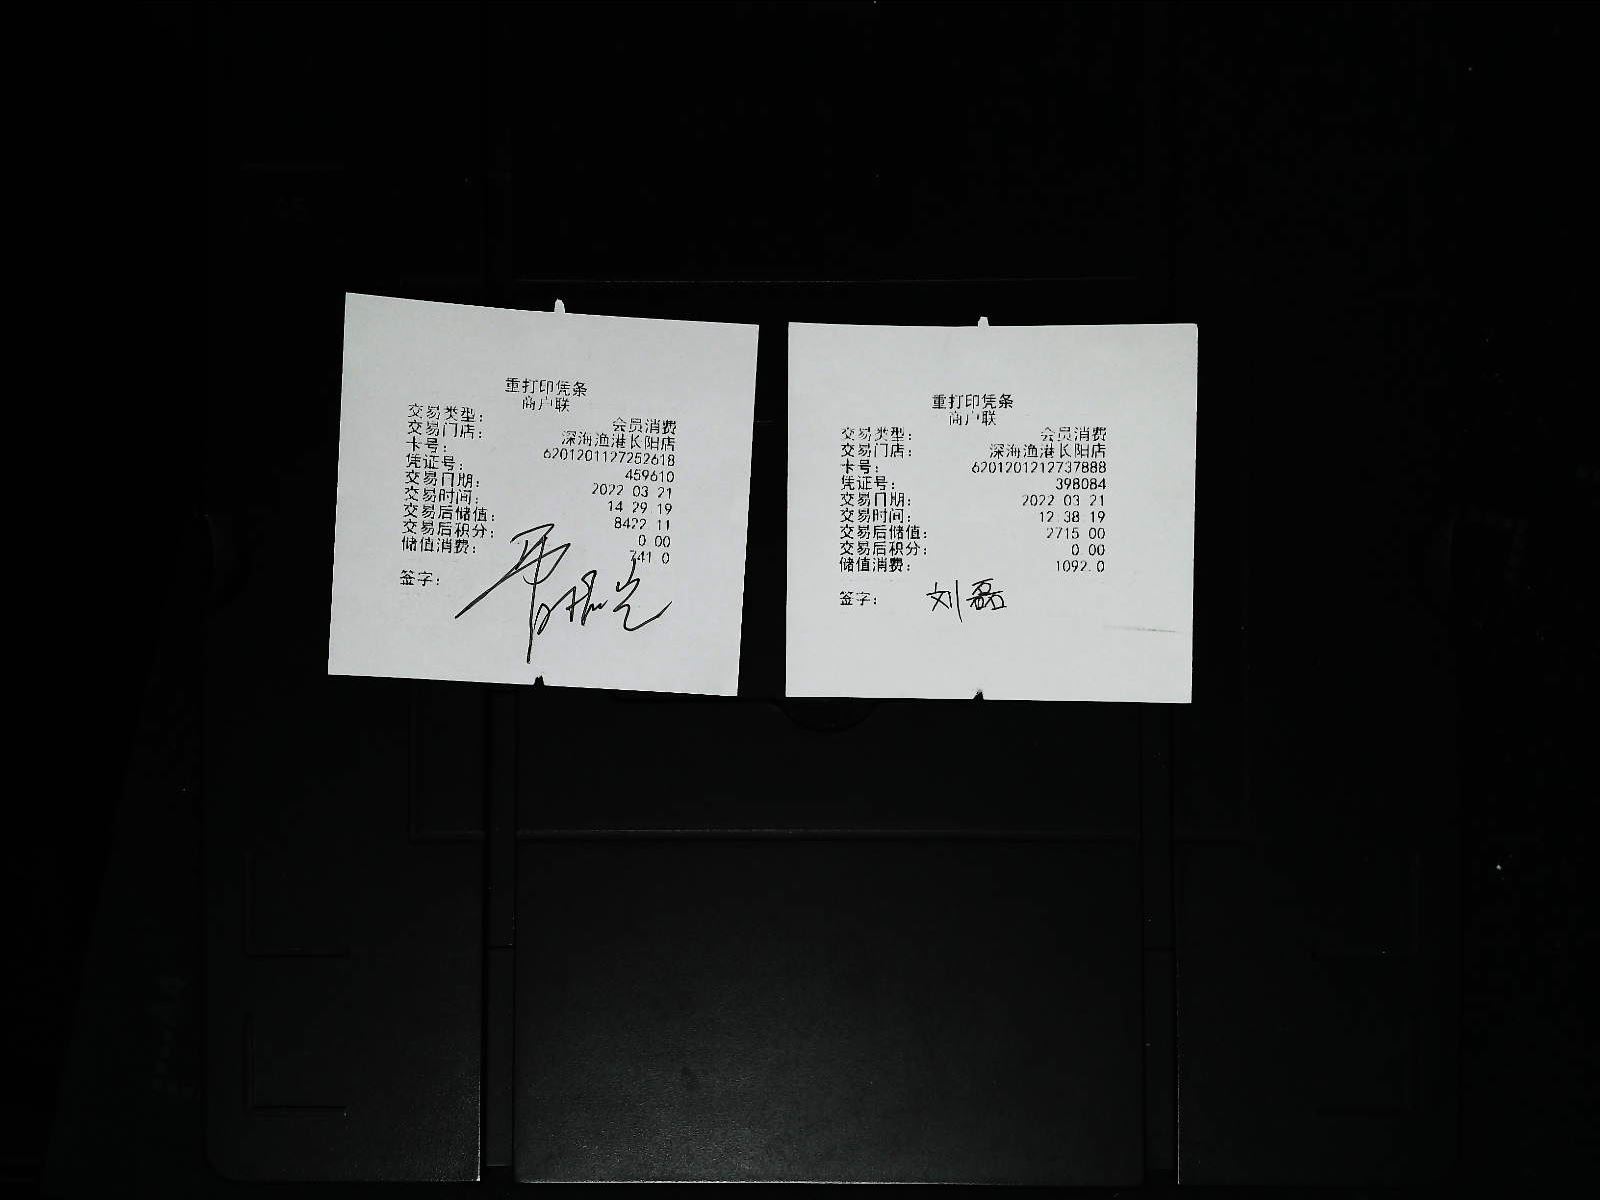 重打印凭条
商户联
交易类型: 会员消费
交易门店: 深海渔港长阳店
卡号: 6201201127252618
凭证号: 459610
交易日期: 2022 03 21
交易时间: 14 29 19
交易后储值: 8422 11
交易后积分: 0 00
储值消费: 741 0
签字:
重打印凭条
商户联
交易类型: 会员消费
交易门店: 深海渔港长阳店
卡号: 6201201212737888
凭证号: 398084
交易日期: 2022 03 21
交易时间: 12 38 19
交易后储值: 2715 00
交易后积分: 0 00
储值消费: 1092.0
签字: 刘磊